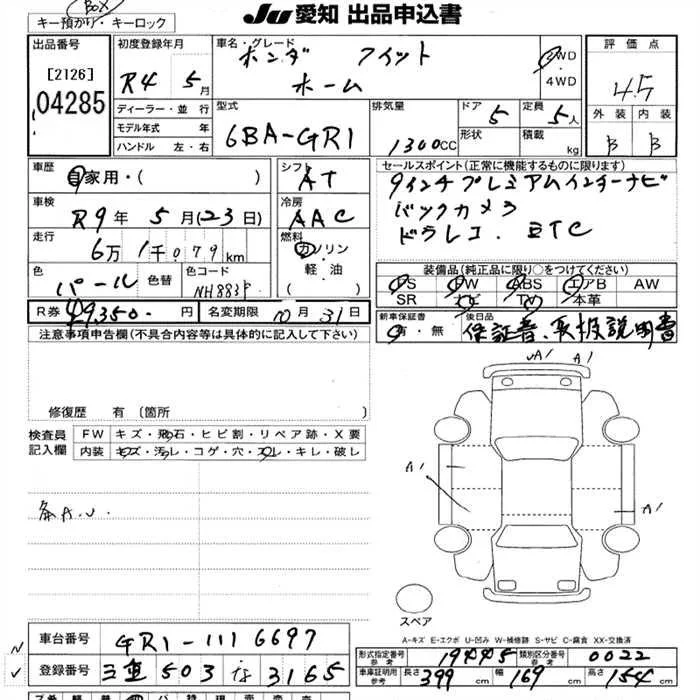 BOX
キー預かり・キーロック
JU 愛知 出品申込書
出品番号
[2126]
04285
初度登録年月
R4 5月
車名・グレード
ホンダ フィット
ホーム
2WD
・
4WD
評価点
4.5
外装 内装
B B
ディーラー・並行
モデル年式 年
ハンドル 左・右
型式
6BA-GR1
排気量
1300CC
ドア 5
形状
定員 5人
積載 kg
車歴
自家用・( )
車検
R9年 5月(23日)
走行
6万1千079km
色
パール
色替
色コード
NH883P
シフト
AT
冷房
AAC
燃料
ガソリン
・
軽油
( )
セールスポイント(正常に機能するものに限ります)
9インチプレミアムインターナビ
バックカメラ
ドラレコ. ETC
装備品(純正品に限り○をつけてください)
PS PW ABS エアB AW
SR ナビ TV 本革
R券 ¥9,350.円
名変期限 10月31日
新車保証書
有・無
後日品
保証書、取扱説明書
注意事項申告欄(不具合内容等は具体的に記入して下さい)
修復歴 有 〔箇所 〕
検査員
記入欄
FW キズ・飛石・ヒビ割・リペア跡・X要
内装 キズ・汚レ・コゲ・穴・スレ・キレ・破レ
A.U.
A1 A1
A1
A1
スペア
A-キズ E-エクボ U-凹み W-補修跡 S-サビ C-腐食 XX-交換済
車台番号 GR1-1116697
登録番号 三重 503 な 3165
型式指定番号
参考
19445
類別区分番号
参考
0022
車庫証明用
参考
長さ 399cm 幅 169cm 高さ 154cm